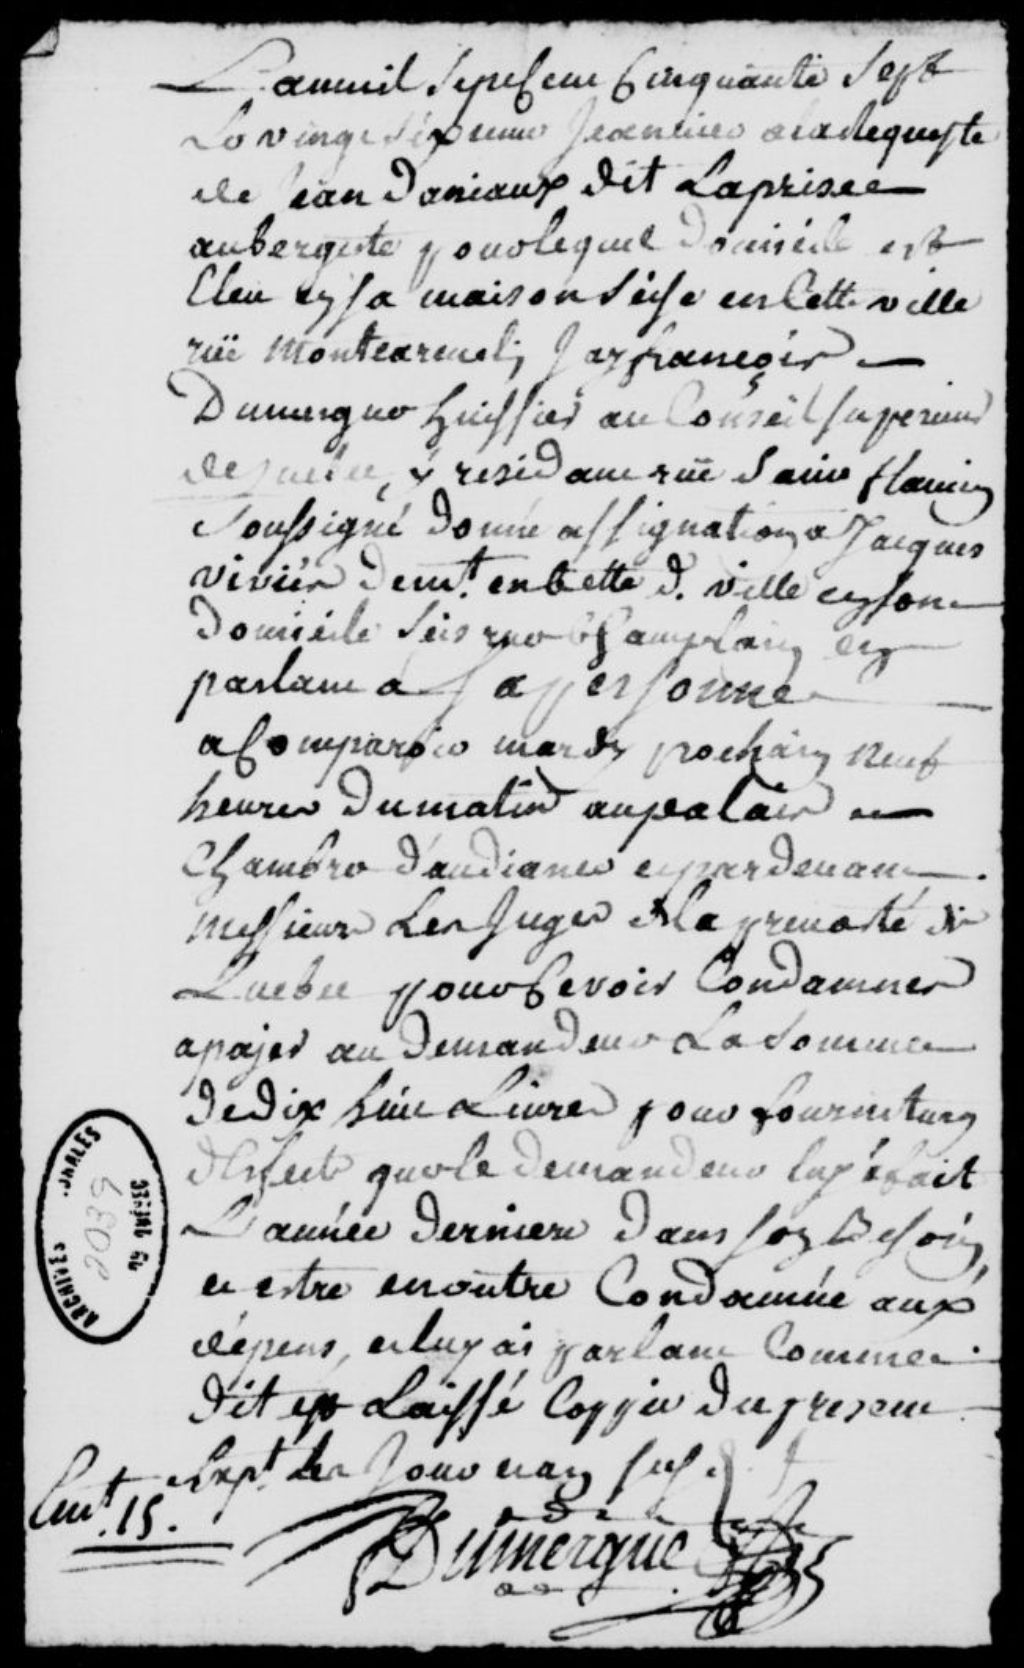 L'an mil sept cent Cinquante Sept
Le vingt Six eme Jeanvier a la Requeste
de Jean Daniaux dit Laprisee
aubergiste pour lequel domicile est
Eleu en sa maison Seise en Cette ville
rüe Montcarmel, Jay françois
Dumergue huissier au Conseil superieur
de quebec, y residant rüe Saint flavien
Soussigné donné assignation a Jacques
vivier demt. en Cette d. ville en son
domicile Seis rue Champlain en
parlant a Sa personne
a Comparoir mardy prochain neuf
heures du matin au palais
Chambre d'audiance et pardevant
Messieurs Les Juges de La prevosté de
Quebec pour Se voir Condamner
a payer au demandeur La Somme
de dix huit Livres pour fourniture
d'Effects que le demandeur luy a fait
L'année derniere dans son Besoin,
et estre en outre Condamnée aux
dépens, et luy ai parlant Comme
dit est Laissé Coppie du present
Expt. Les Jour et an sus d.
15.
Dumergue
ARCHIVES
DU QUÉBEC
2039